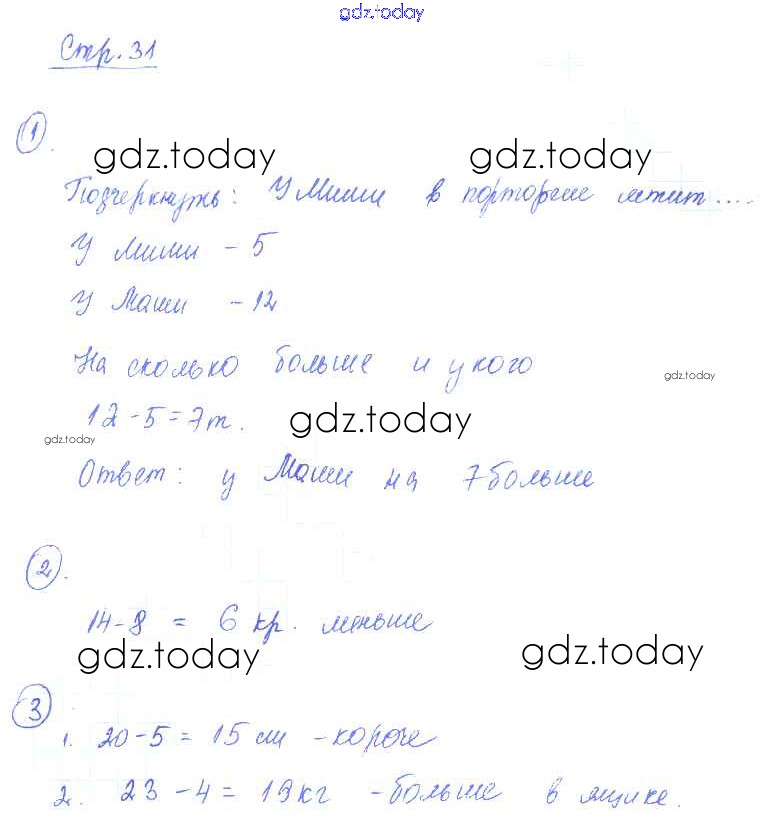 gdz.today
Стр. 31
1.
gdz.today gdz.today
Подчеркнуть: У Миши в портфеле лежит ....
У Миши - 5
У Маши - 12
На сколько больше и у кого
gdz.today
12 - 5 = 7 т.
gdz.today
gdz.today
Ответ: у Маши на 7 больше
2.
14 - 8 = 6 кр. меньше
gdz.today gdz.today
3
1. 20 - 5 = 15 см - короче
2. 23 - 4 = 19 кг - больше в ящике.